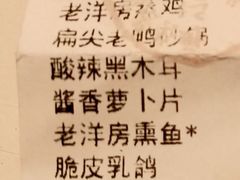 老洋房茶鸡
扁尖老鸭砂锅
酸辣黑木耳
酱香萝卜片
老洋房熏鱼*
脆皮乳鸽